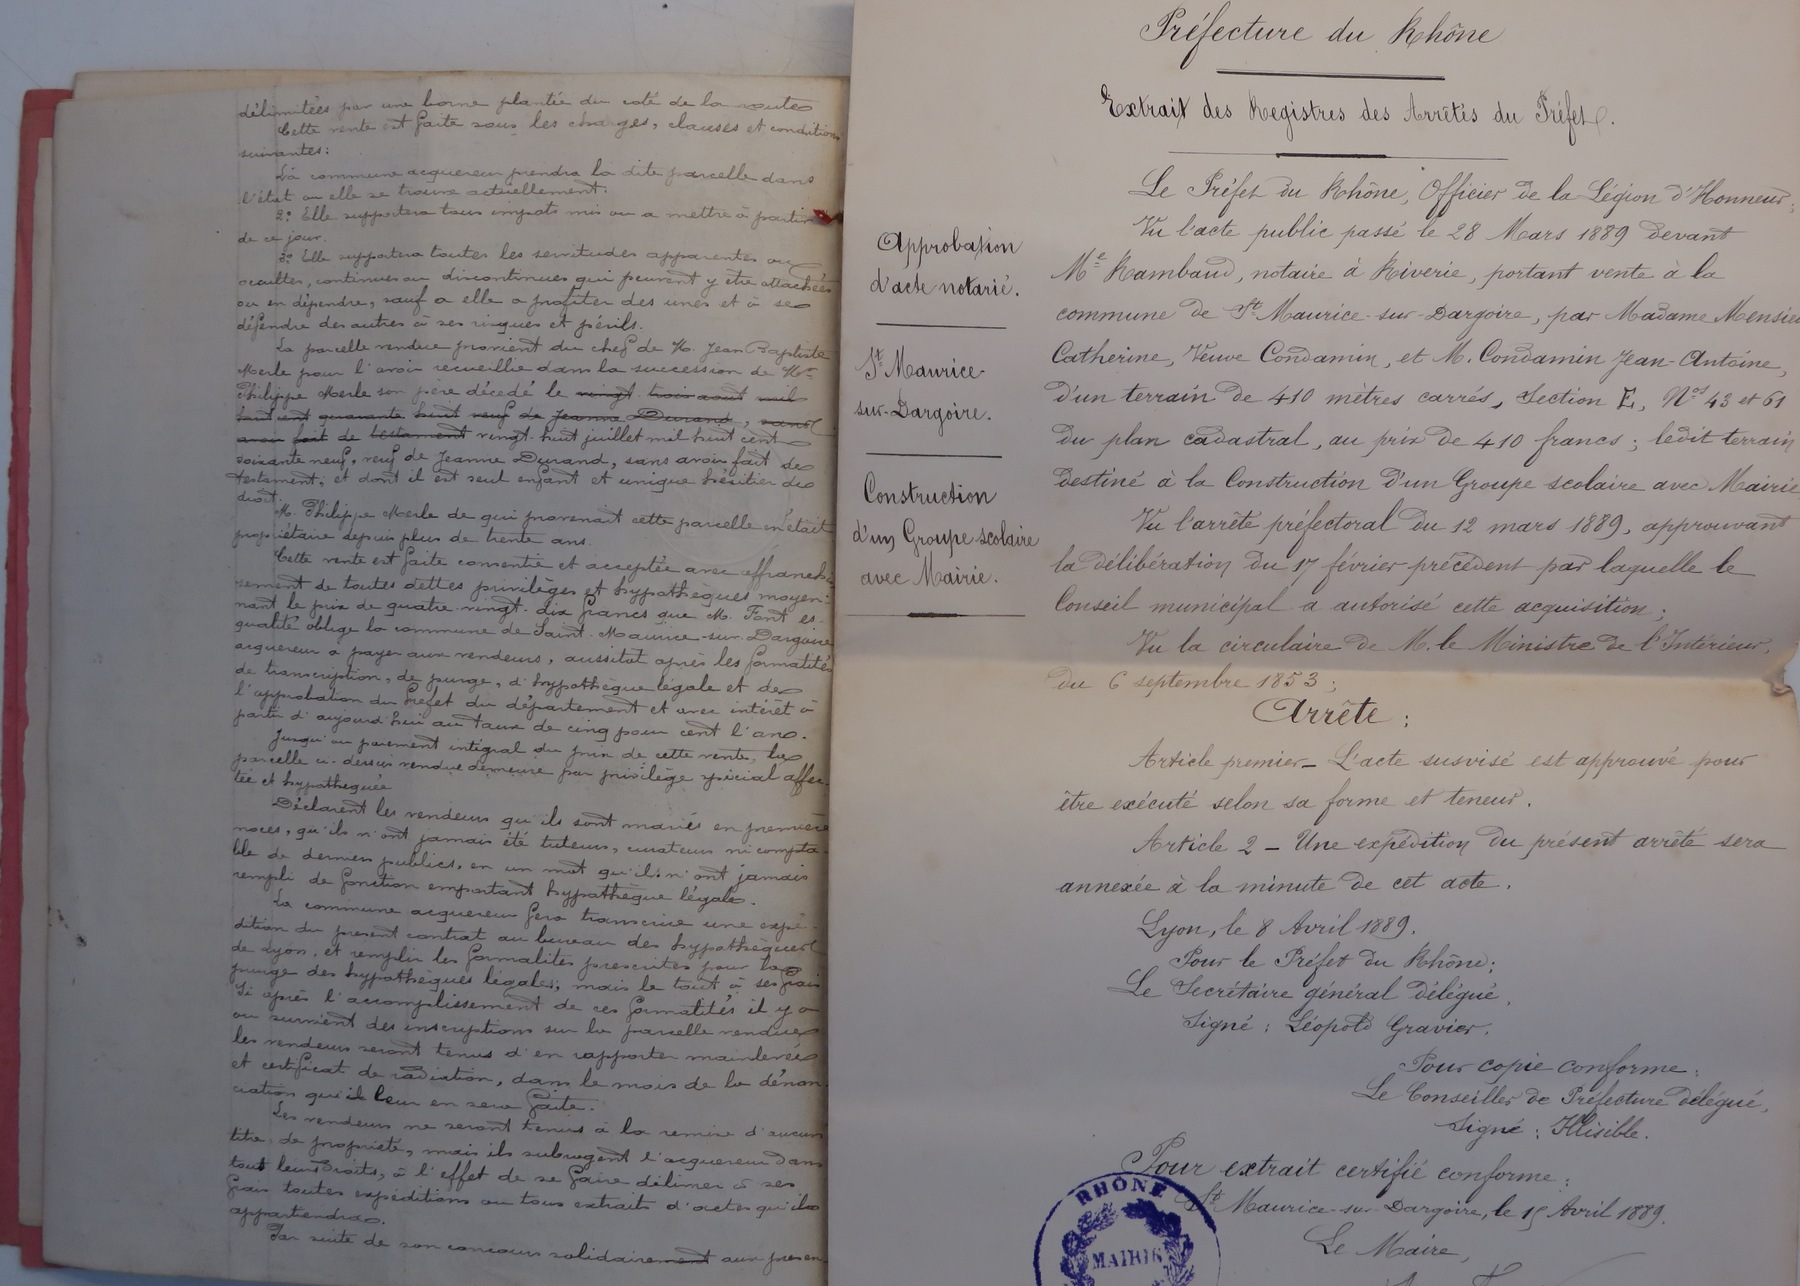 délimitées par une borne plantée du coté de la route
Cette vente est faite sous les charges, clauses et conditions
suivantes:
La commune acquereur prendra la dite parcelle dans
l'état ou elle se trouve actuellement.
2º Elle supportera tous impots mis ou a mettre à partir
de ce jour.
3º Elle supportera toutes les servitudes apparentes ou
occultes, continues ou discontinues qui peuvent y être attachées
ou en dépendre, sauf a elle a profiter des unes et à se
défendre des autres à ses risques et périls.
La parcelle vendue provient du chef de M. Jean Baptiste
Merle pour l'avoir recueillie dans la succession de Mr
Philippe Merle son père décédé le vingt trois aout mil
huit cent quarante huit veuf de Jeanne Durand, sans
avoir fait de testament vingt-huit juillet mil huit cent
soixante neuf, veuf de Jeanne Durand, sans avoir fait de
testament, et dont il est seul enfant et unique héritier de
droit.
M. Philippe Merle de qui provenait cette parcelle en était
propriétaire depuis plus de trente ans.
Cette vente est faite consentie et acceptée avec affranchis
sement de toutes dettes privilèges et hypothèques moyen-
nant le prix de quatre-vingt-dix francs que M. Font es-
qualité oblige la commune de Saint-Maurice-sur-Dargoire
acquereur à payer aux vendeurs, aussitot après les formalités
de transcription, de purge, d'hypothèque légale et de
l'approbation du Préfet du département et avec intérêt à
partir d'aujourd'hui au taux de cinq pour cent l'an.
Jusqu'au paiement intégral du prix de cette vente, la
parcelle ci-dessus vendue demeure par privilège spécial affec-
tée et hypothéquée
Déclarent les vendeurs qu'ils sont mariés en première
noces, qu'ils n'ont jamais été tuteurs, curateurs ni compta-
ble de deniers publics, en un mot qu'ils n'ont jamais
rempli de fonction emportant hypothèque légale.
La commune acquereur fera transcrire une expé-
dition du present contrat au bureau des hypothèques
de Lyon, et remplir les formalités prescrites pour la
purge des hypothèques légales; mais le tout à ses frais
Si après l'accomplissement de ces formalités il y a
ou survient des inscriptions sur la parcelle vendue
les vendeurs seront tenus d'en rapporter mainlevée
et certificat de radiation, dans le mois de la dénon-
ciation qu'il leur en sera faite.
Les vendeurs ne seront tenus à la remise d'aucun
titre de propriété, mais ils subrogent l'acquereur dans
tout leurs droits, à l'effet de se faire délivrer à ses
frais toutes expéditions ou tous extraits d'actes qu'il
appartiendra.
Par suite de son concours solidairement aux presen
Préfecture du Rhône
Extrait des Registres des Arrêtés du Préfet.
Approbation
d'acte notarié.
St Maurice-
sur-Dargoire.
Construction
d'un Groupe scolaire
avec Mairie.
Le Préfet du Rhône, Officier de la Légion d'Honneur;
Vu l'acte public passé le 28 Mars 1889 devant
Me Rambaud, notaire à Riverie, portant vente à la
commune de St Maurice-sur-Dargoire, par Madame
Catherine, Veuve Condamin, et M. Condamin Jean-Antoine,
d'un terrain de 410 mètres carrés, Section E, Nos 43 et 61
du plan cadastral, au prix de 410 francs; ledit terrain
destiné à la Construction d'un Groupe scolaire avec Mairie
Vu l'arrêté préfectoral du 12 mars 1889, approuvant
la délibération du 17 février précédent par laquelle le
Conseil municipal a autorisé cette acquisition;
Vu la circulaire de M. le Ministre de l'Intérieur,
du 6 septembre 1853;
Arrête:
Article premier_ L'acte susvisé est approuvé pour
être exécuté selon sa forme et teneur.
Article 2 _ Une expédition du présent arrêté sera
annexée à la minute de cet acte.
Lyon, le 8 Avril 1889.
Pour le Préfet du Rhône;
Le Secrétaire général délégué,
Signé: Léopold Gravier.
Pour copie conforme:
Le Conseiller de Préfecture délégué,
Signé: Illisible.
Pour extrait certifié conforme:
St Maurice-sur-Dargoire, le 15 Avril 1889.
Le Maire,
RHÔNE
MAIRIE